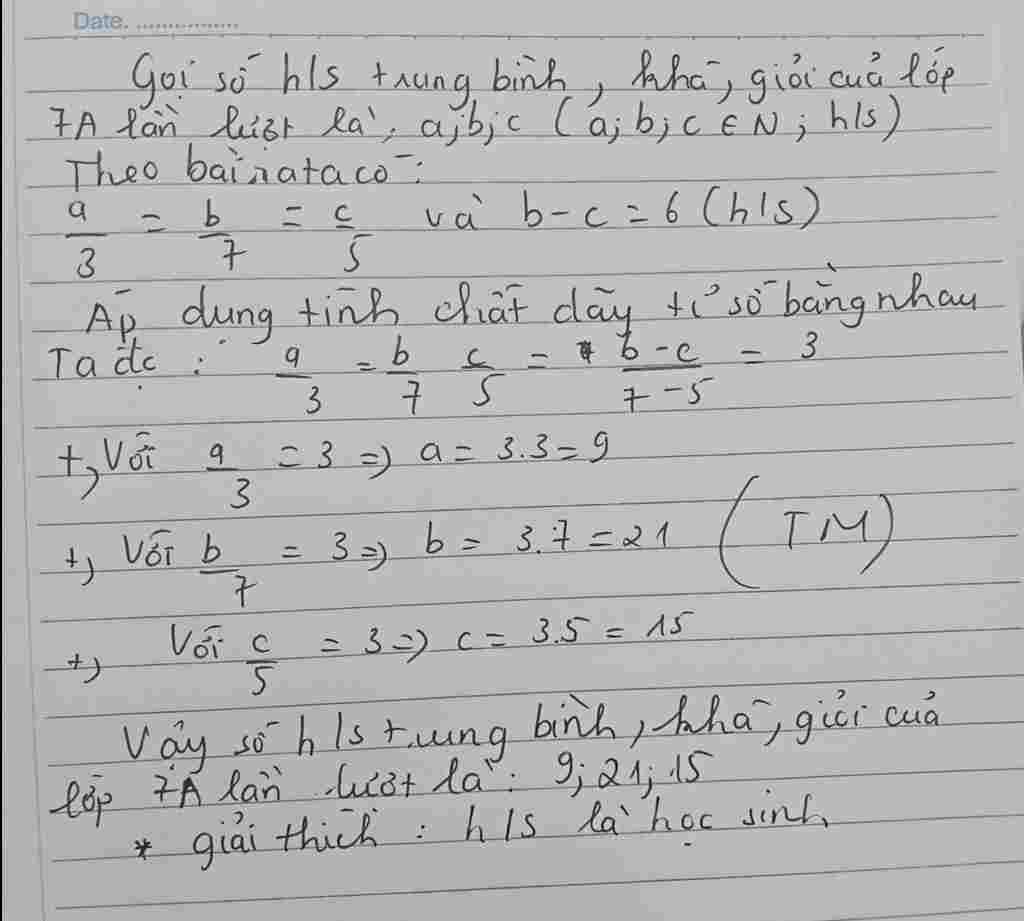 Date. ................
Gọi số h/s trung bình, khá, giỏi của lớp
7A lần lượt là, a;b;c (a;b;c ∈ N; h/s)
Theo bài ra ta có:
a/3 = b/7 = c/5 và b-c = 6 (h/s)
Áp dụng tính chất dãy tỉ số bằng nhau
Ta đc : a/3 = b/7 c/5 = b-c/7-5 = 3
+, Với a/3 = 3 => a = 3.3 = 9
+, Với b/7 = 3 => b = 3.7 = 21 (TM)
+, Với c/5 = 3 => c = 3.5 = 15
Vậy số h/s trung bình, khá, giỏi của
lớp 7A lần lượt là: 9; 21; 15
* giải thích : h/s là học sinh